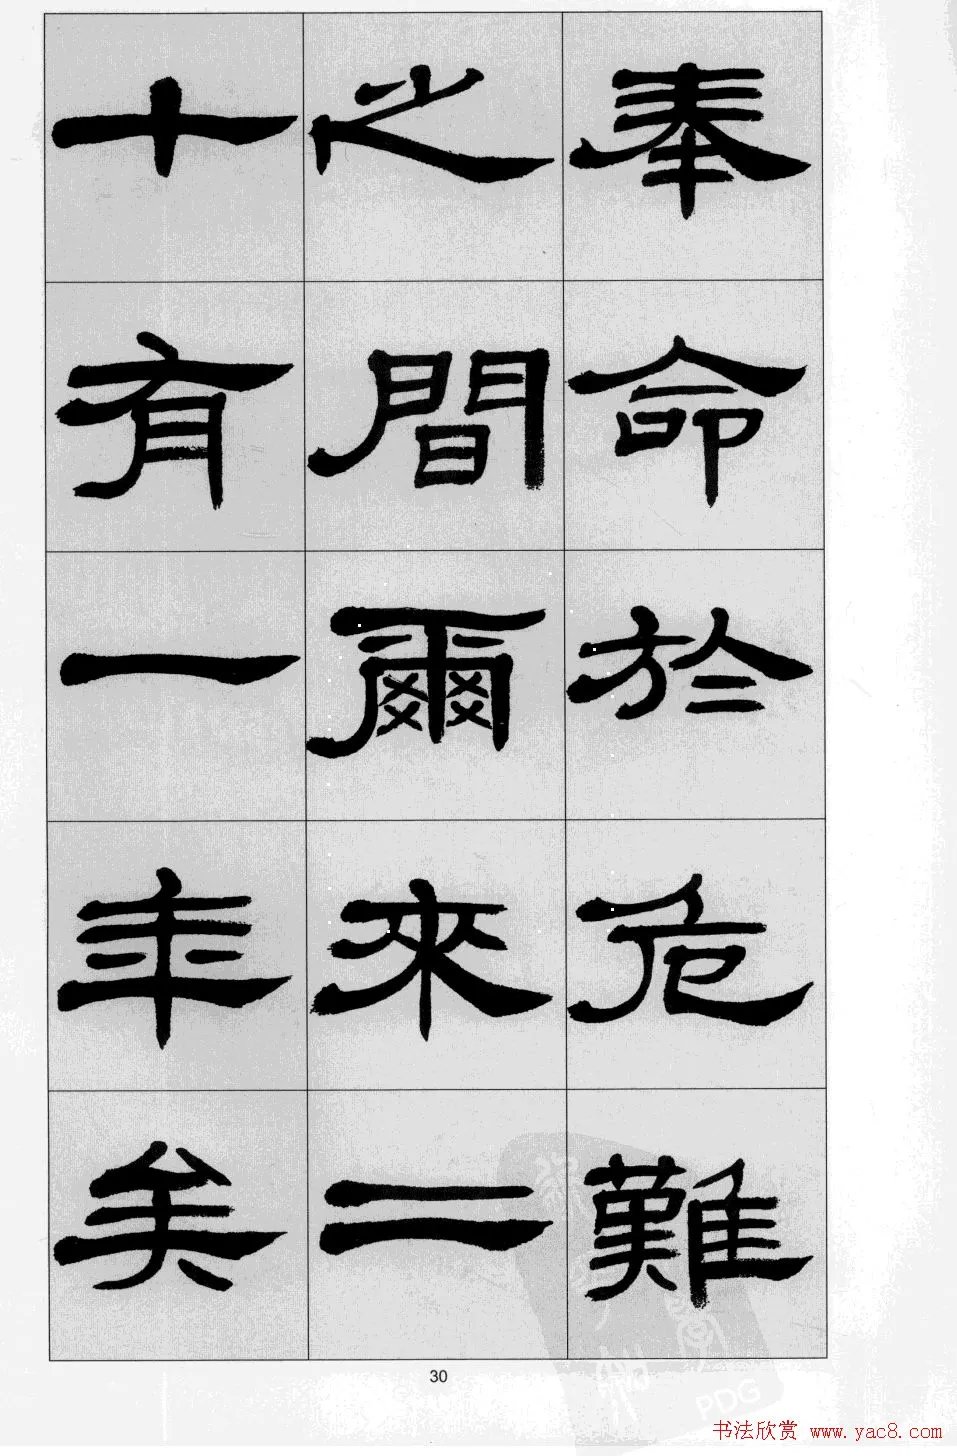 奉命於危難
之間爾來二
十有一年矣
30
PDG
书法欣赏 www.yac8.com